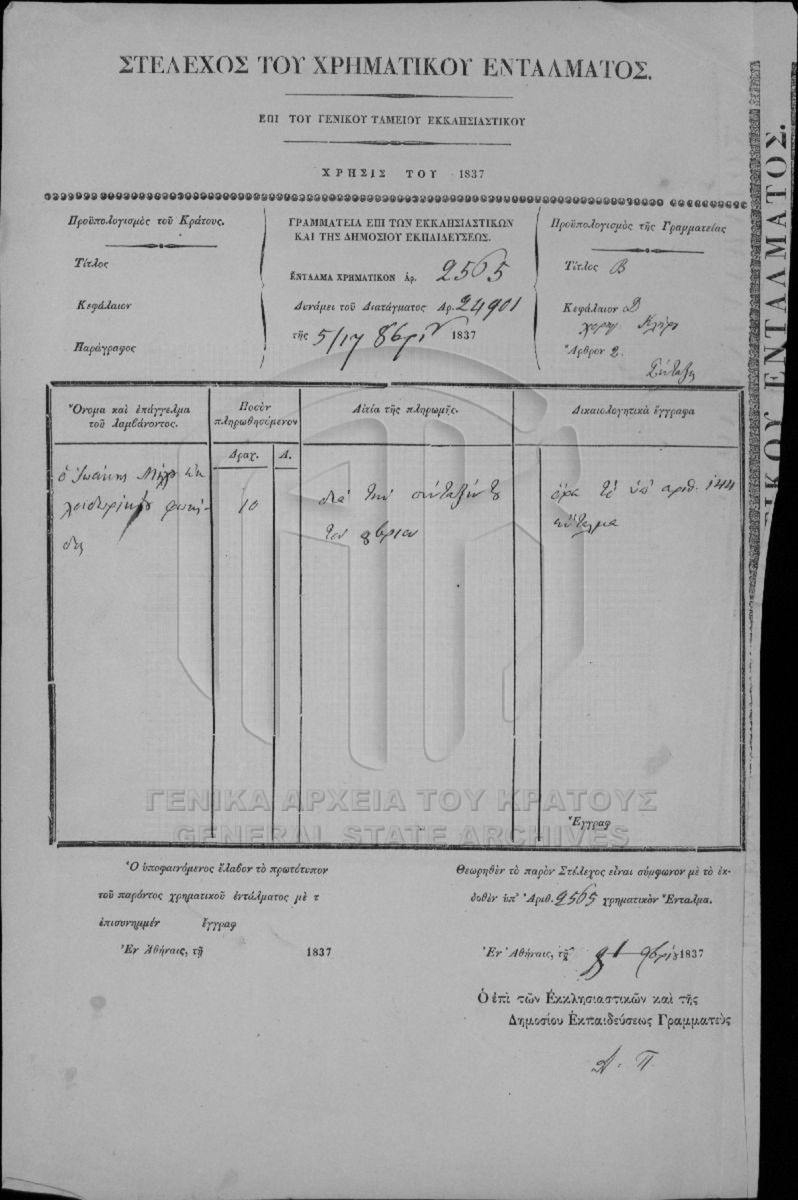 ΣΤΕΛΕΧΟΣ ΤΟΥ ΧΡΗΜΑΤΙΚΟΥ ΕΝΤΑΛΜΑΤΟΣ.
ΕΠΙ ΤΟΥ ΓΕΝΙΚΟΥ ΤΑΜΕΙΟΥ ΕΚΚΛΗΣΙΑΣΤΙΚΟΥ
ΧΡΗΣΙΣ ΤΟΥ 1837
Προϋπολογισμὸς τοῦ Κράτους.
Τίτλος
Κεφάλαιον
Παράγραφος
ΓΡΑΜΜΑΤΕΙΑ ΕΠΙ ΤΩΝ ΕΚΚΛΗΣΙΑΣΤΙΚΩΝ
ΚΑΙ ΤΗΣ ΔΗΜΟΣΙΟΥ ΕΚΠΑΙΔΕΥΣΕΩΣ.
ΕΝΤΑΛΜΑ ΧΡΗΜΑΤΙΚΟΝ Ἀρ. 2565
Δυνάμει τοῦ Διατάγματος Ἀρ. 24901
τῆς 5/17 8βρίου 1837
Προϋπολογισμὸς τῆς Γραμματείας
Τίτλος Β
Κεφάλαιον Δ
Κλήρ
Ἄρθρον 2.
Σύνταξις
Ὄνομα καὶ ἐπάγγελμα
τοῦ λαμβάνοντος.
Ποσὸν
πληρωθησόμενον
Δραχ. Λ.
Αἰτία τῆς πληρωμῆς.
Δικαιολογητικὰ ἔγγραφα
ὁ Ἰωάννης
10
διὰ τὴν σύνταξίν του
τοῦ 9βρίου
ὅρα τὸ ὑπ' ἀριθ. 144
ἔνταλμα
Ἔγγραφ
ΓΕΝΙΚΑ ΑΡΧΕΙΑ ΤΟΥ ΚΡΑΤΟΥΣ
GENERAL STATE ARCHIVES
Ὁ ὑποφαινόμενος ἔλαβον τὸ πρωτότυπον
τοῦ παρόντος χρηματικοῦ ἐντάλματος μὲ τ
ἐπισυνημμέν ἔγγραφ
Ἐν Ἀθήναις, τῇ 1837
Θεωρηθὲν τὸ παρὸν Στέλεχος εἶναι σύμφωνον μὲ τὸ ἐκ-
δοθὲν ὑπ' Ἀριθ. 2565 χρηματικὸν Ἔνταλμα.
Ἐν Ἀθήναις, τῇ 9βρίου 1837
Ὁ ἐπὶ τῶν Ἐκκλησιαστικῶν καὶ τῆς
Δημοσίου Ἐκπαιδεύσεως Γραμματεὺς
Α. Π.
ΤΙΚΟΥ ΕΝΤΑΛΜΑΤΟΣ.